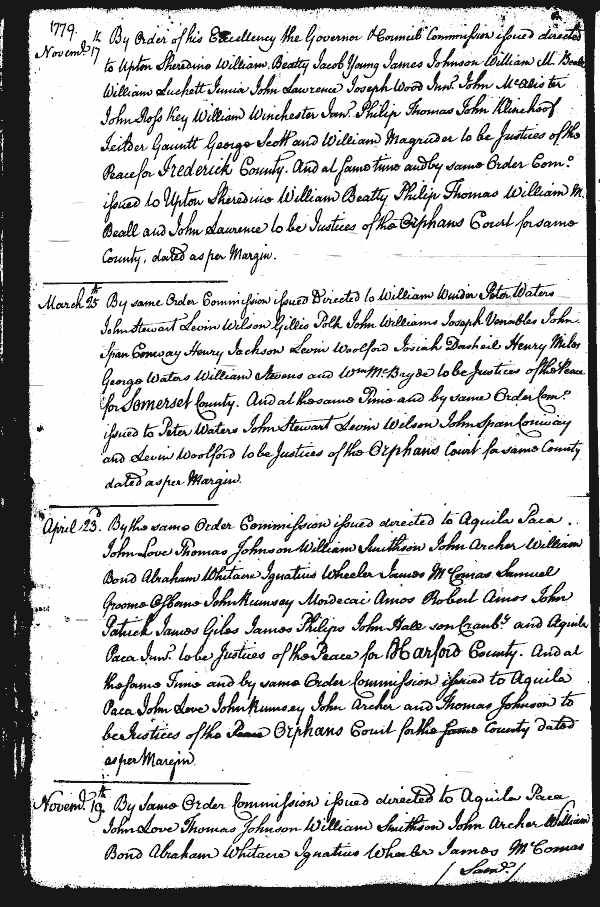 1779.
Novemr. 17th By Order of his Excellency the Governor & Council Commission issued directed
to Upton Sheredine William Beatty Jacob Young James Johnson William M. Beall
William Luckett Junior John Lawrence Joseph Wood Junr. John McAlister
John Ross Key William Winchester Junr. Philip Thomas John Klinehoof
Gauntt George Scott and William Magruder to be Justices of the
Peace for Frederick County. And at same time and by same Order Comn.
issued to Upton Sheredine William Beatty Philip Thomas William M.
Beall and John Lawrence to be Justices of the Orphans Court for same
County, dated as per Margin.
March 25th By same Order Commission issued Directed to William Winder Peter Waters
John Stewart Levin Wilson Gillis Polk John Williams Joseph Venables John
Span Conway Henry Jackson Levin Woolford Josiah Dasheil Henry Miles
George Waters William Stevens and Wm. McBryde to be Justices of the Peace
for Somerset County. And at the same Time and by same Order Comn.
issued to Peter Waters John Stewart Levin Wilson John Span Conway
and Levin Woolford to be Justices of the Orphans Court for same County
dated as per Margin.
April 23d. By the same Order Commission issued directed to Aquila Paca
John Love Thomas Johnson William Smithson John Archer William
Bond Abraham Whitacre Ignatius Wheeler James McComas Samuel
Groome Osborne John Rumsey Mordecai Amos Robert Amos John
Patrick James Giles James Philips John Hall son Cranby. and Aquila
Paca Junr. to be Justices of the Peace for Harford County. And at
the same Time and by same Order Commission issued to Aquila
Paca John Love John Rumsey John Archer and Thomas Johnson to
be Justices of the Peace Orphans Court for the same County dated
as per Margin
Novemr. 19th By Same Order Commission issued directed to Aquila Paca
John Love Thomas Johnson William Smithson John Archer William
Bond Abraham Whitacre Ignatius Wheeler James McComas
/ Saml. /